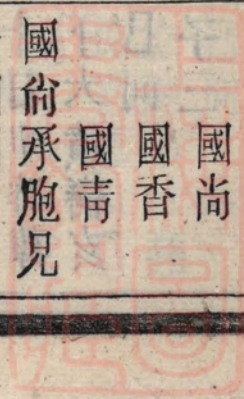 國尚
國香
國青
國尚承胞兄